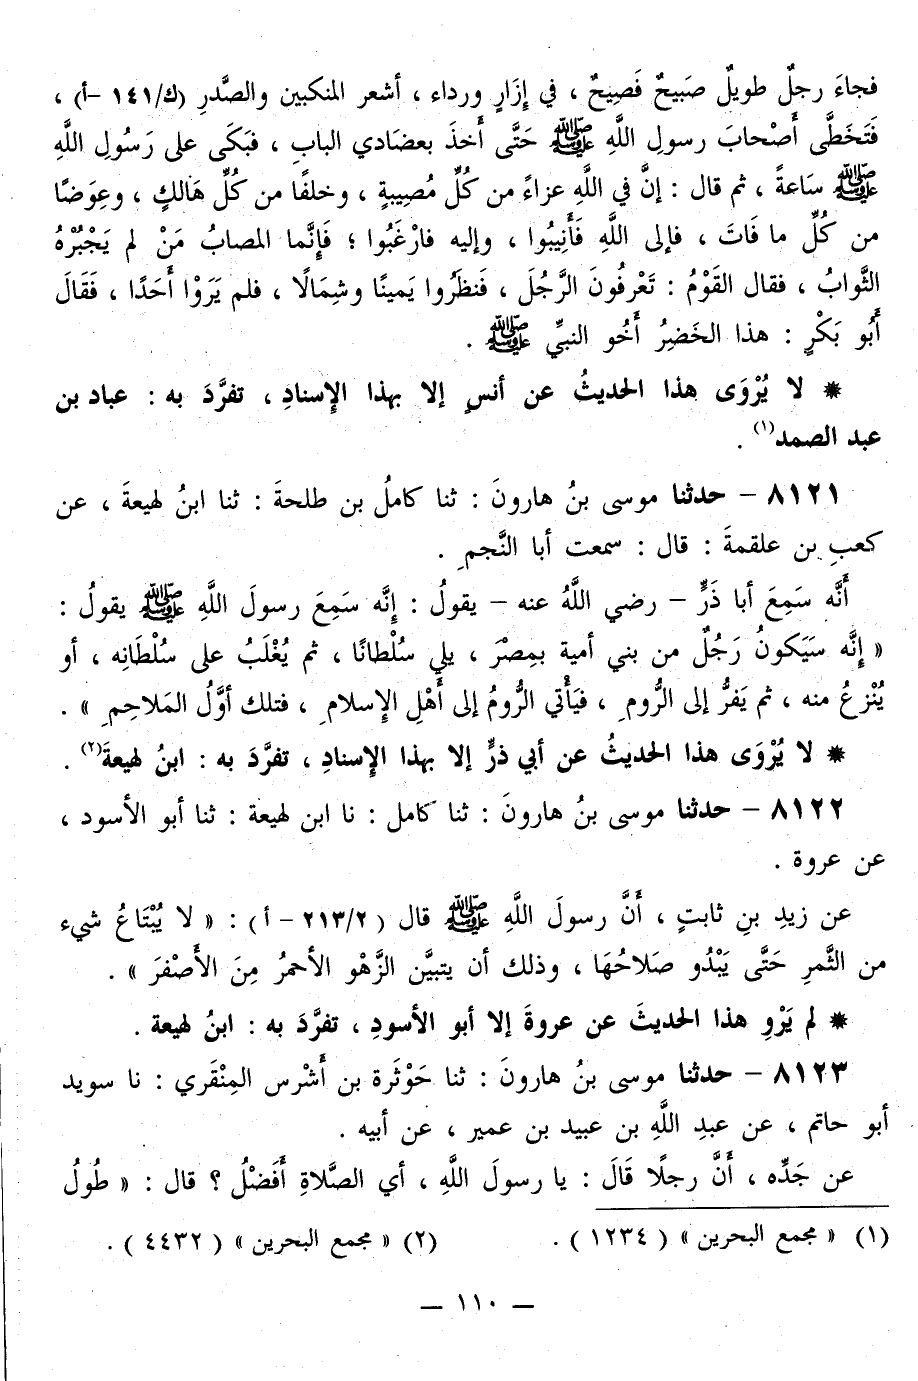 فجاءَ رجلٌ طويلٌ صَبيحٌ فَصِيحٌ ، في إِزَارٍ ورداء ، أشعر المنكبين والصَّدرِ (ك/١٤١ -أ) ،
فَتَخَطَّى أَصْحابَ رسولِ اللَّهِ ﷺ حَتَّى أَخذَ بعضَادي البابِ ، فبَكَى على رَسُولِ اللَّهِ
ﷺ سَاعةً ، ثم قال : إنَّ في اللَّهِ عزاءً من كُلِّ مُصِيبةٍ ، وخلفًا من كُلِّ هَالكٍ ، وعِوَضًا
من كُلِّ ما فَاتَ ، فإلى اللَّهِ فَأَنِيبُوا ، وإليه فارْغَبُوا ؛ فَإِنَّما المصابُ مَنْ لم يَجْبُرْهُ
الثَّوابُ ، فقال القَوْمُ : تَعْرِفُونَ الرَّجُلَ ، فَنظَرُوا يَمينًا وشِمَالًا ، فلم يَرَوْا أَحَدًا ، فَقَالَ
أَبُو بَكْرٍ : هذا الخَضِرُ أَخُو النبيِّ ﷺ .
* لا يُرْوَى هذا الحديثُ عن أنسٍ إلا بهذا الإِسنادِ ، تفرَّدَ به : عباد بن
عبد الصمد(١) .
٨١٢١ – حدثنا موسى بنُ هارونَ : ثنا كاملُ بن طلحةَ : ثنا ابنُ لهيعةَ ، عن
كعبِ بن علقمةَ : قال : سمعت أبا النَّجمِ .
أَنَّه سَمِعَ أبا ذَرٍّ – رضي اللَّهُ عنه – يقولُ : إِنَّه سَمِعَ رسولَ اللَّهِ ﷺ يقولُ :
« إِنَّه سَيَكونُ رَجُلٌ من بني أمية بمِصْرَ ، يلي سُلْطانًا ، ثم يُغْلَبُ على سُلْطَانِه ، أو
يُنْزعُ منه ، ثم يَفرُّ إلى الرُّومِ ، فيَأْتي الرُّومُ إلى أَهْلِ الإِسلامِ ، فتلك أوَّلُ المَلاحِمِ » .
* لا يُرْوَى هذا الحديثُ عن أبي ذرٍّ إلا بهذا الإِسنادِ ، تفرَّدَ به : ابنُ لهيعةَ(٢) .
٨١٢٢ – حدثنا موسى بنُ هارونَ : ثنا كامل : نا ابن لهيعة : ثنا أبو الأسود ،
عن عروة .
عن زيدِ بنِ ثابتٍ ، أَنَّ رسولَ اللَّهِ ﷺ قال (٢١٣/٢ – أ) : « لا يُبْتَاعُ شيء
من الثَّمرِ حَتَّى يَبْدُو صَلاحُهَا ، وذلك أن يتبيَّن الزَّهْو الأحمرُ مِنَ الأَصْفرَ » .
* لم يَرْوِ هذا الحديثَ عن عروةَ إلا أبو الأسودِ ، تفرَّدَ به : ابنُ لهيعة .
٨١٢٣ – حدثنا موسى بنُ هارونَ : ثنا حَوْثَرة بن أَشْرس المِنْقَري : نا سويد
أبو حاتم ، عن عبدِ اللَّهِ بن عبيد بن عمير ، عن أبيه .
عن جَدِّه ، أَنَّ رجلًا قَالَ : يا رسولَ اللَّهِ ، أي الصَّلاةِ أَفَضْلُ ؟ قال : « طُولُ
(١) « مجمع البحرين » (١٢٣٤) . (٢) « مجمع البحرين » (٤٤٣٢) .
– ١١٠ –